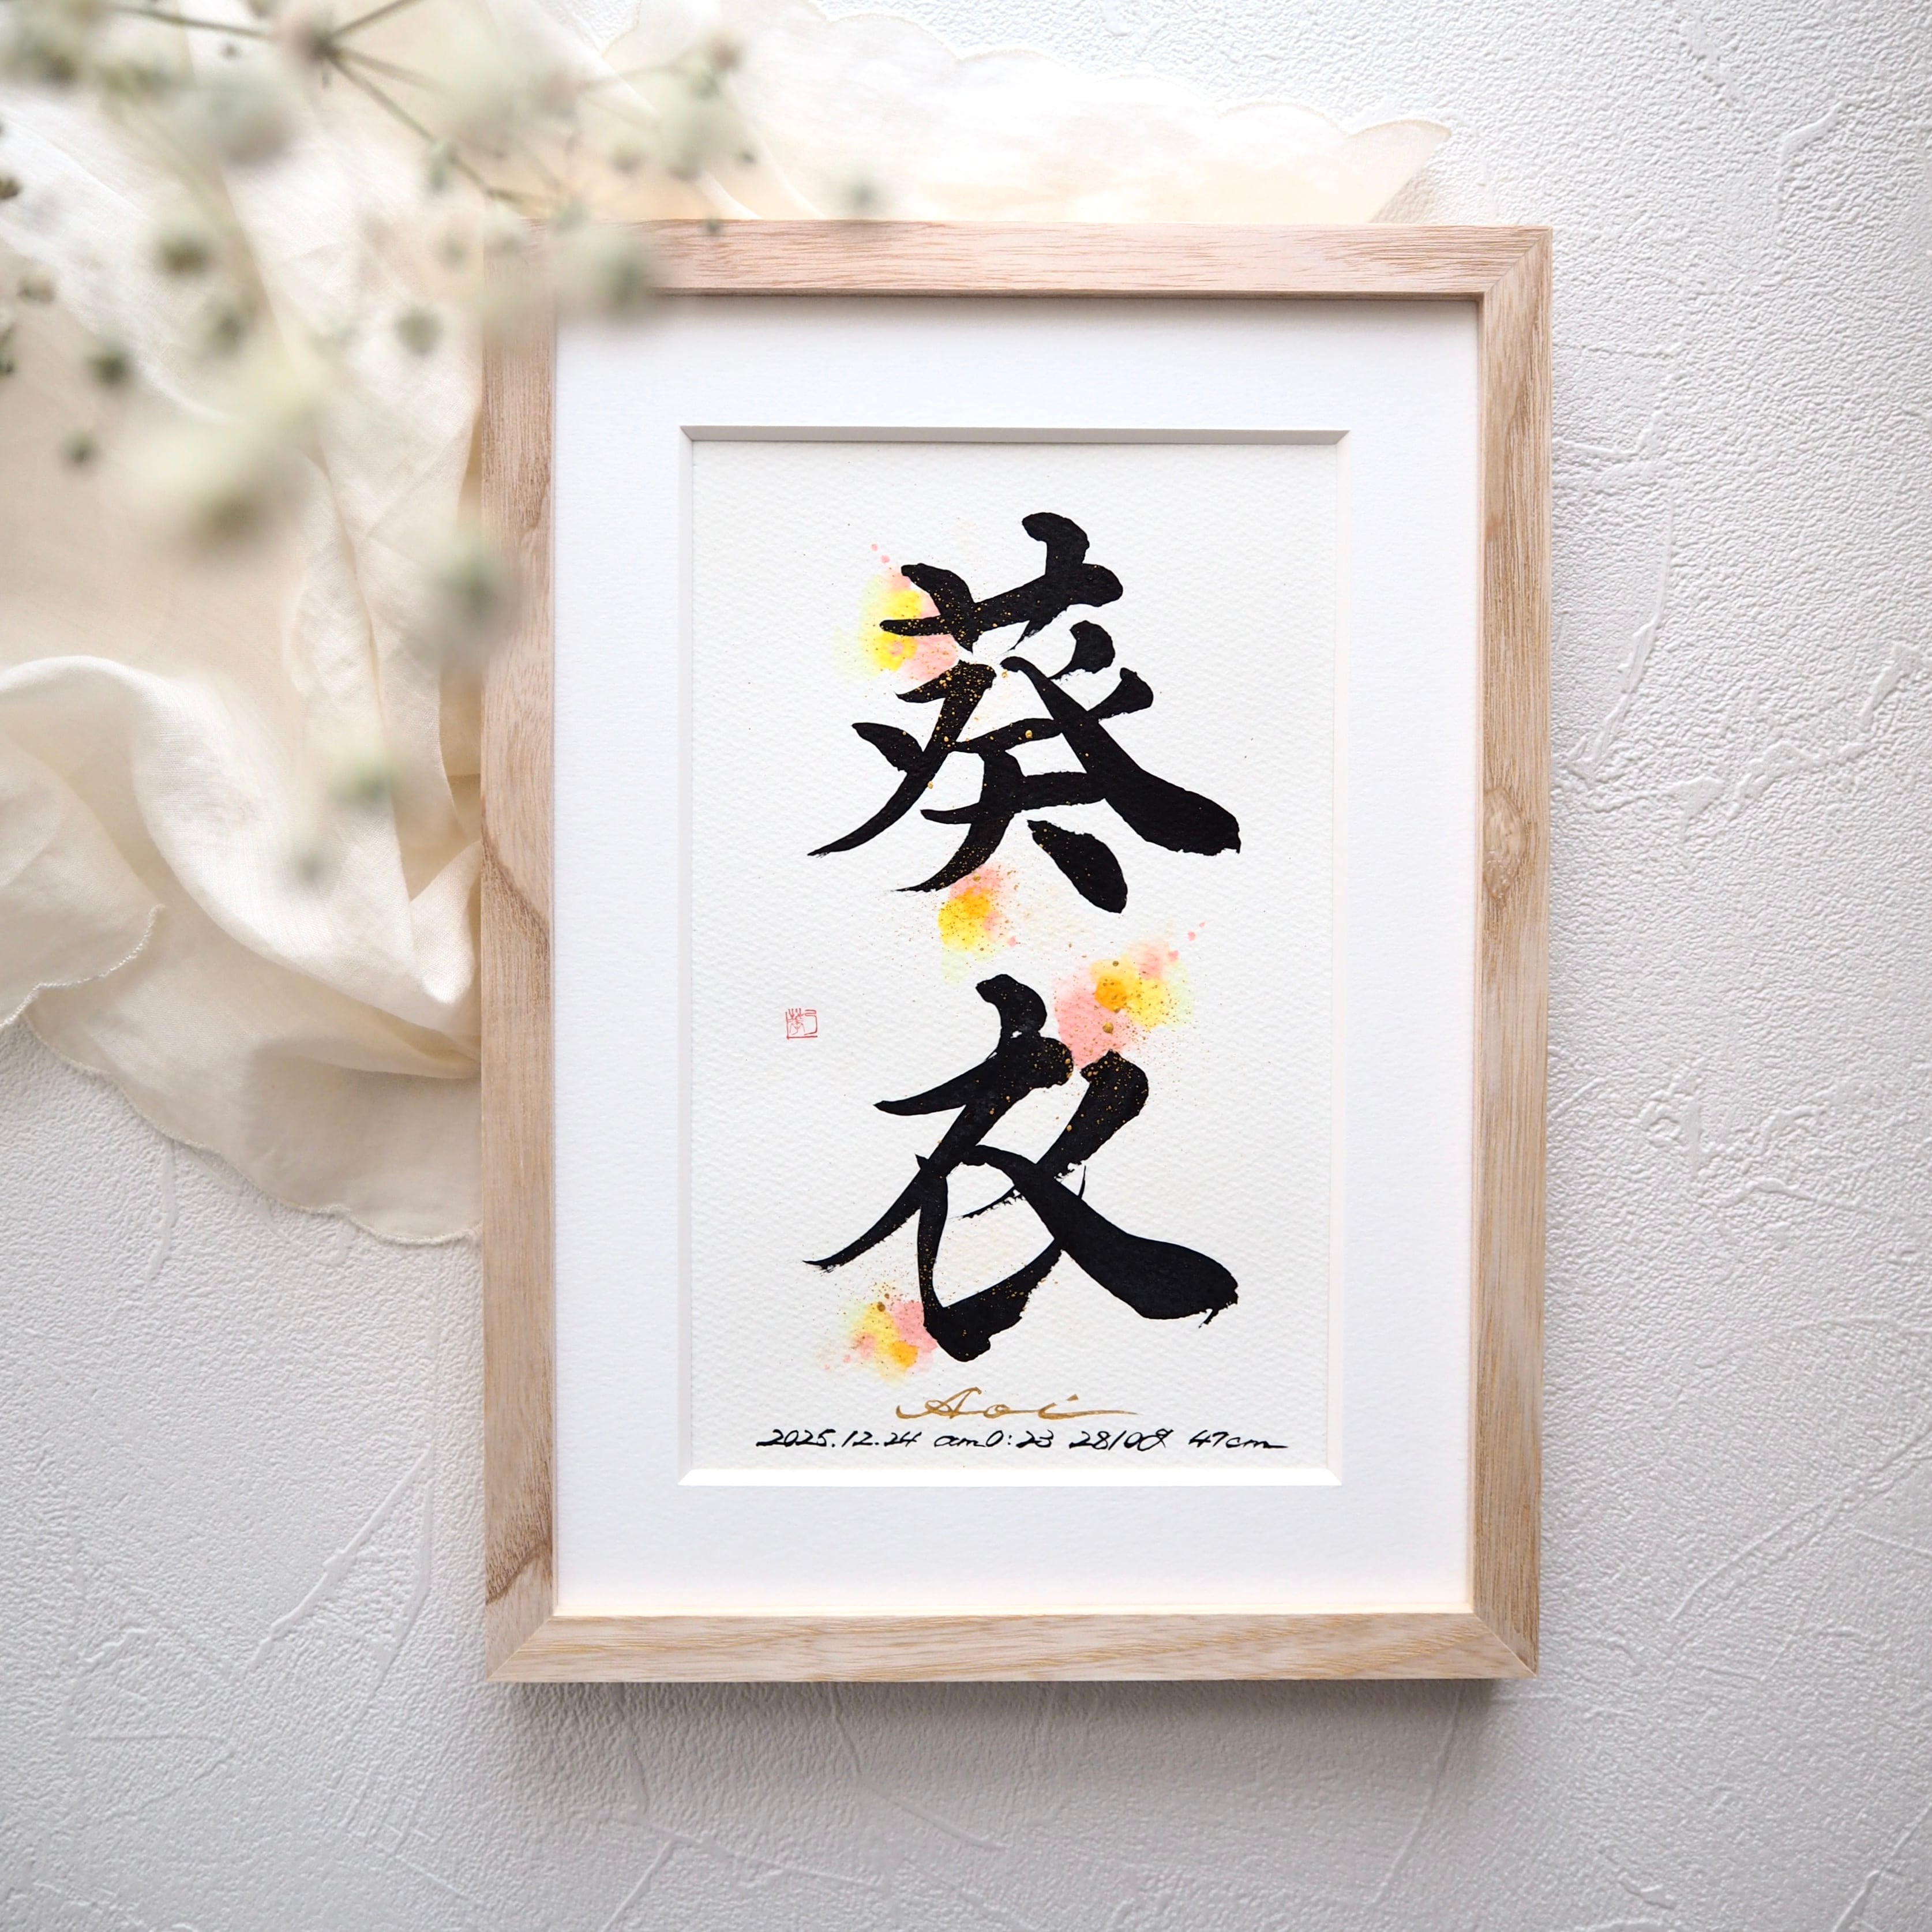 葵衣
Aoi
2025.12.24 am0:23 2810g 47cm